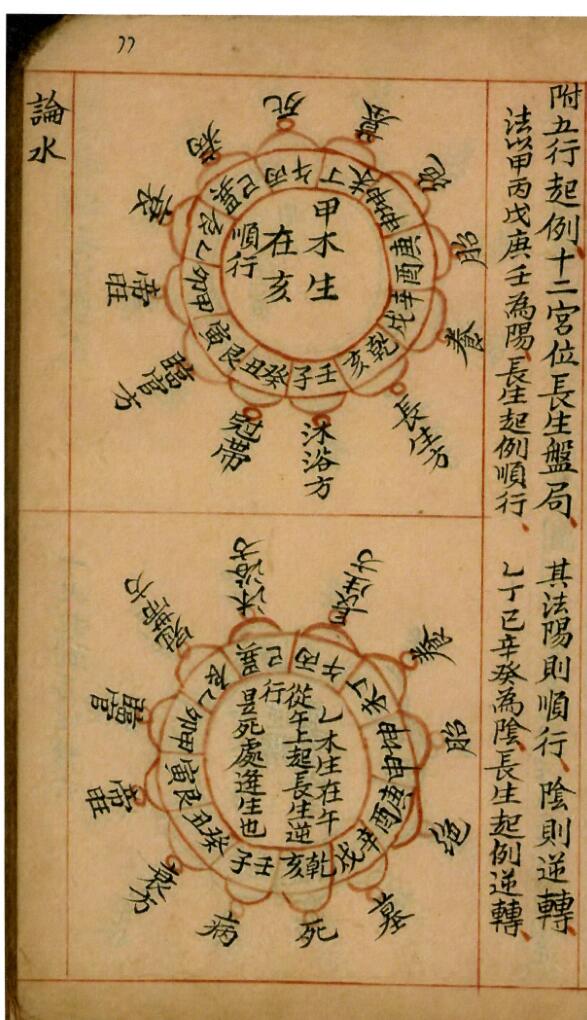 附五行起例、十二宮位長生盤局、其法陽則順行、陰則逆轉、
法以甲丙戊庚壬為陽、長生起例順行、乙丁己辛癸為陰、長生起例逆轉、
甲木生
在亥
順行
長生方
沐浴方
冠帶
臨官方
帝旺
衰
病
死
墓
絕
胎
養
乾亥
壬子
癸丑
艮寅
甲卯
乙辰
巽巳
丙午
丁未
坤申
庚酉
辛戌
乙木生在午
從午上起長生逆
行
是死處逢生也
長生方
沐浴方
冠帶方
臨官
帝旺
衰方
病
死
墓
绝
胎
養
丙午
巽巳
乙辰
甲卯
艮寅
癸丑
壬子
乾亥
辛戌
庚酉
坤申
丁未
論水
77